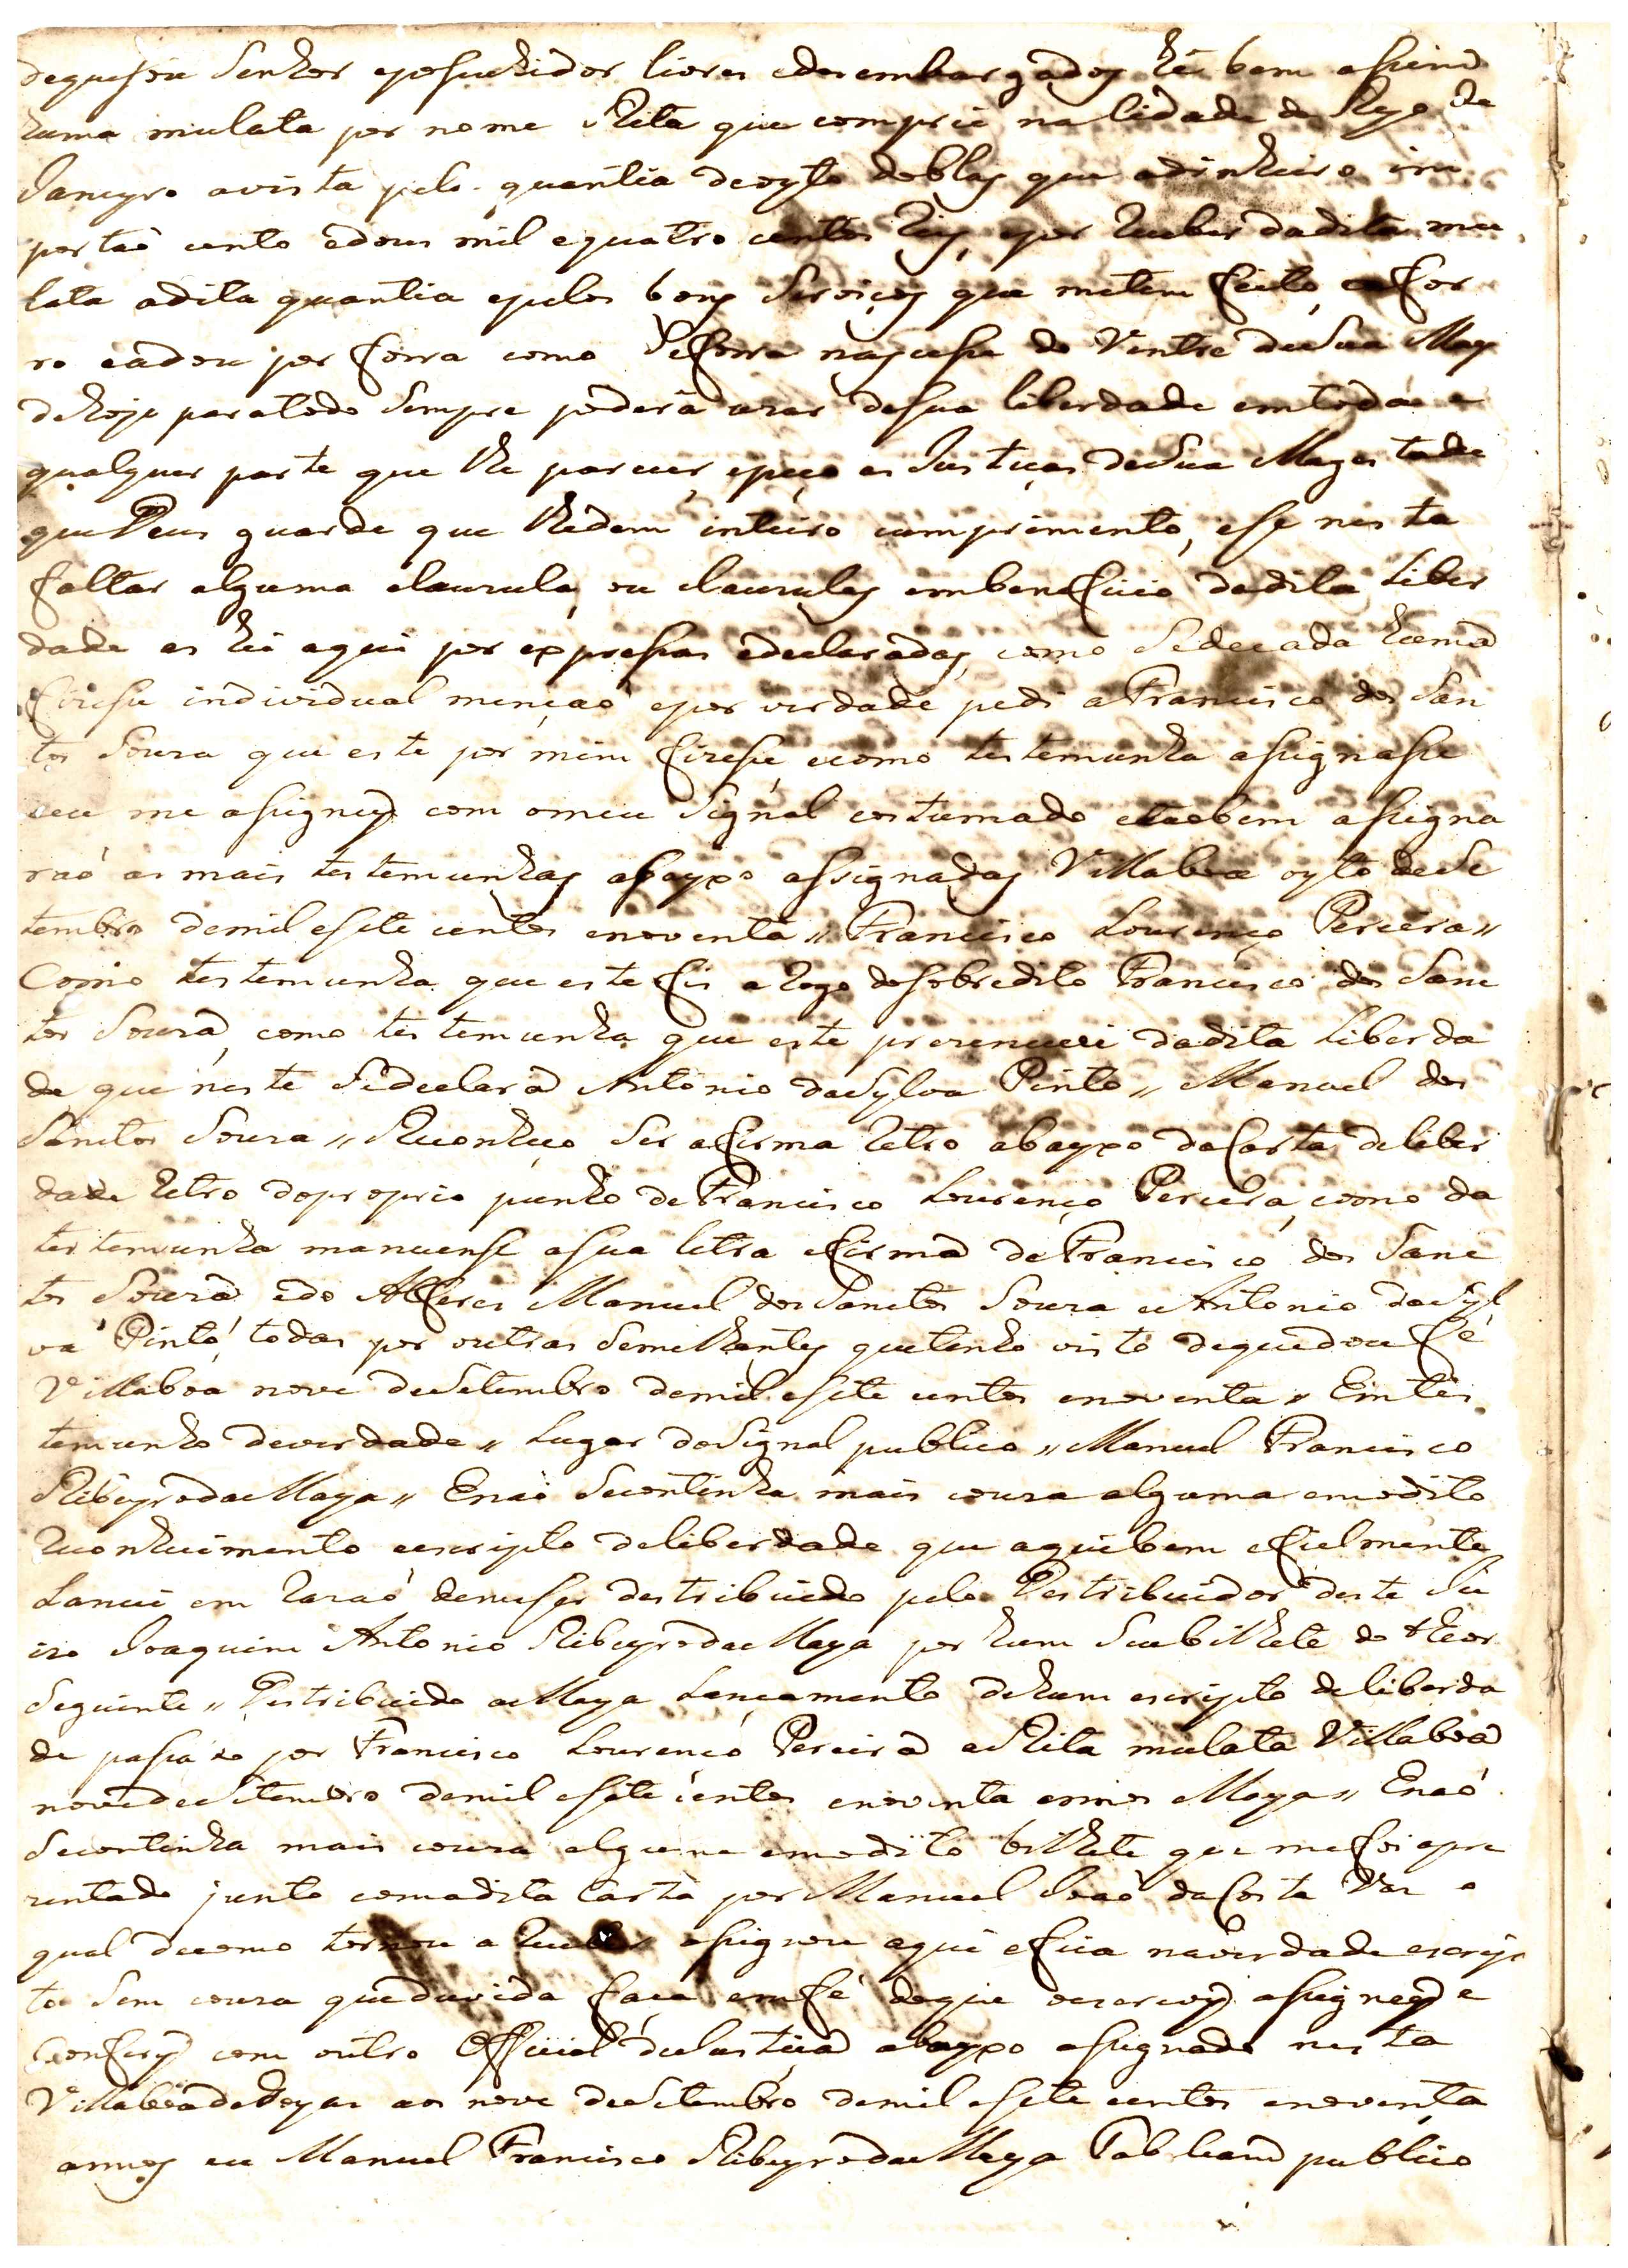 dequesou Senhor eposuhidor livres edesembargados he bem asim
huma mulata por nome Rita que comprei na Cidade do Ryo de
Janeyro avista pela quantia deoyto doblas que adinheiro im
portaõ cento edous mil equatro centos reis, epor receber dadita mu
lata adita quantia epelos bons Serviços que metem feito, a for
ro eadou por forra como Seforra nascese do Ventre desua May
dehoje paratodo Sempre poderá uzar desua liberdade emtoda e
qualquer parte que lhe parecer, epeço as Justiças deSua Magestade
que Deus guarde que lhedem inteiro comprimento, ese nesta
faltar alguma clauzula, ou clauzulas embeneficio dadita Liber
dade as hei aqui por expresas edeclaradas, como Sedecada huma
fizese individual mençaõ epor verdade pedi aFrancisco dos San
tos Souza que este por mim fizese ecomo testemunha asignase
eeu me asigney com omeu Signal costumado etaobem asigna
raõ as mais testemunhas abayxo assignadas Villaboa oyto deSe
tembro demil esete centos enoventa // Francisco Lourenço Pereira //
Como testemunha que este fis a rogo dosobredito Francisco dos Sanc
tos Souza, como testemunha que este prezenciei dadita Liberda
de que neste Sedeclara Antonio daSylva Pinto // Manuel dos
Sanctos Souza // Reconheço Ser afirma retro abayxo daCarta deliber
dade retro doproprio punho deFrancisco Lourenço Pereira, como da
testemunha manuense asua letra efirma deFrancisco dos Sanc
tos Souza edo Alferes Manuel dosSanctos Souza eAntonio daSyl
va Pinto, todas por outras Semelhantes quetenho visto dequedou fé
Villaboa nove deSetembro demil esete centos enoventa // Emtes
temunho deverdade // Lugar doSignal publico // Manuel Francisco
RibeyrodaMaya // Enaõ Secontinha mais couza alguma emodito
reconhecimento eescripto deliberdade que aquibem efielmente
Lancei em razaõ demeser destribuido pelo Destribuidor deste Ju
izo Joaquim Antonio RibeyrodaMaya por hum Seubilhete do theor
Seguinte // Destribuido aMaya Lançamento dehum escripto deliberda
de pasado por Francisco Lourenço Pereira aRita mulata Villaboa
novedeSetembro demil esete centos enoventa annos Maya // Enaõ
Secontinha mais couza alguma emodito bilhete que mefoi apre
zentado junto comadita Carta por Manuel Joaõ daCosta Vaz o
qual decomo tornou a receber asignou aqui efica naverdade escrip
to Sem couza queduvida faça emfé doque oescrevy asigney e
Confery com outro Official deJustiça abayxo asignado nesta
VillaboadeGoyas aos nove deSetembro demil esete centos enoventa
annos eu Manuel Francisco RibeyrodaMaya Tabeliam publico